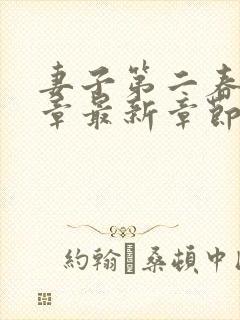 妻子第二春
章最新章節
約翰·桑頓中